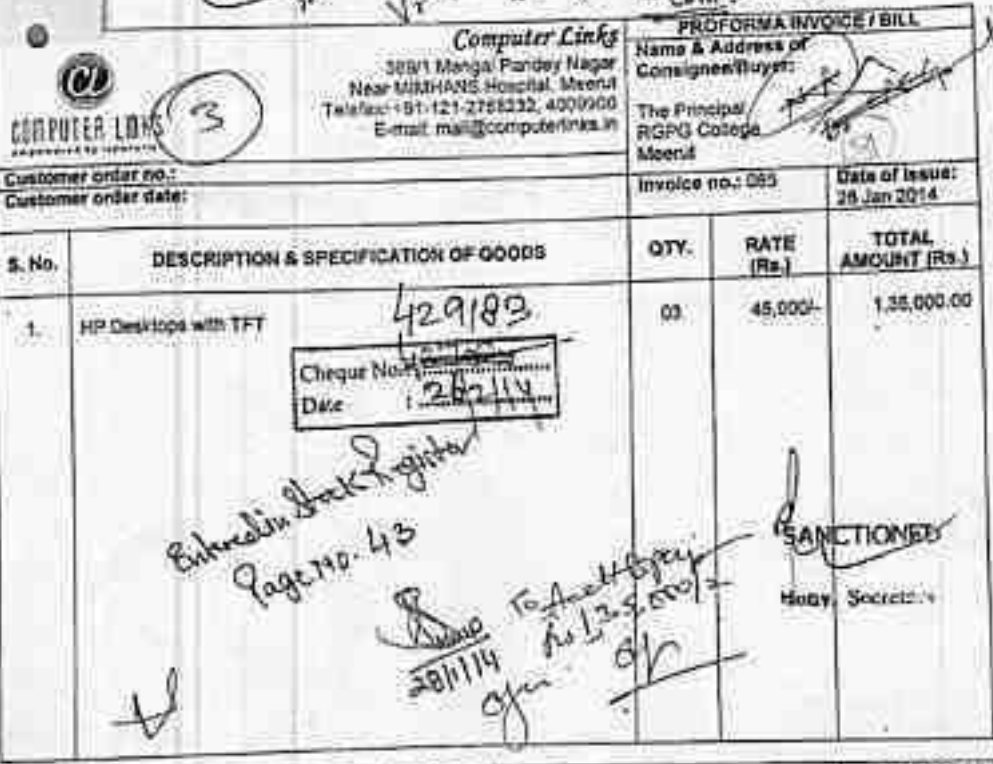 PROFORMA INVOICE / BILL
Computer Links
389/1 Mangal Pandey Nagar
Near MIMHANS Hospital, Meerut
Telefax: +91-121-2768232, 4009900
E-mail: mail@computerlinks.in
COMPUTER LINKS
3
Name & Address of
Consignee/Buyer:
The Principal
RGPG College
Meerut
Customer order no.:
Customer order date:
Invoice no.: 085
Date of Issue:
28 Jan 2014
S. No.
DESCRIPTION & SPECIFICATION OF GOODS
QTY.
RATE
(Rs.)
TOTAL
AMOUNT (Rs.)
1.
HP Desktops with TFT
03
45,000/-
1,35,000.00
429183
Cheque No.
Date :
Entered in Stock Register
Page No. 43
28/1/14
SANCTIONED
Hony. Secretary